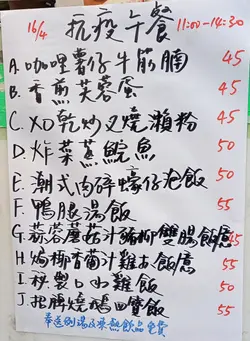 16/4 抗疫午餐 11:00-14:30
A. 咖哩薯仔牛筋腩 45
B. 香煎芙蓉蛋 45
C. XO乾炒叉燒瀨粉 45
D. 炸菜蒸鯇魚 50
E. 潮式肉碎蠔仔泡飯 50
F. 鴨腿湯飯 50
G. 蒜蓉蘑菇汁豬柳雙腸飯 55
H. 燭柳香葡汁雞扒飯 55
I. 秘製口水雞飯 50
J. 招牌燒鵝四寶飯 55
奉送例湯及熱飲